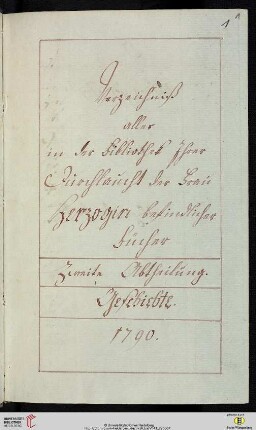 1
Verzeichniß
aller
in der Bibliothek Ihrer
Durchlaucht der Frau
Herzogin befindlicher
Bücher
Zweite Abtheilung.
Geschichte.
1790.